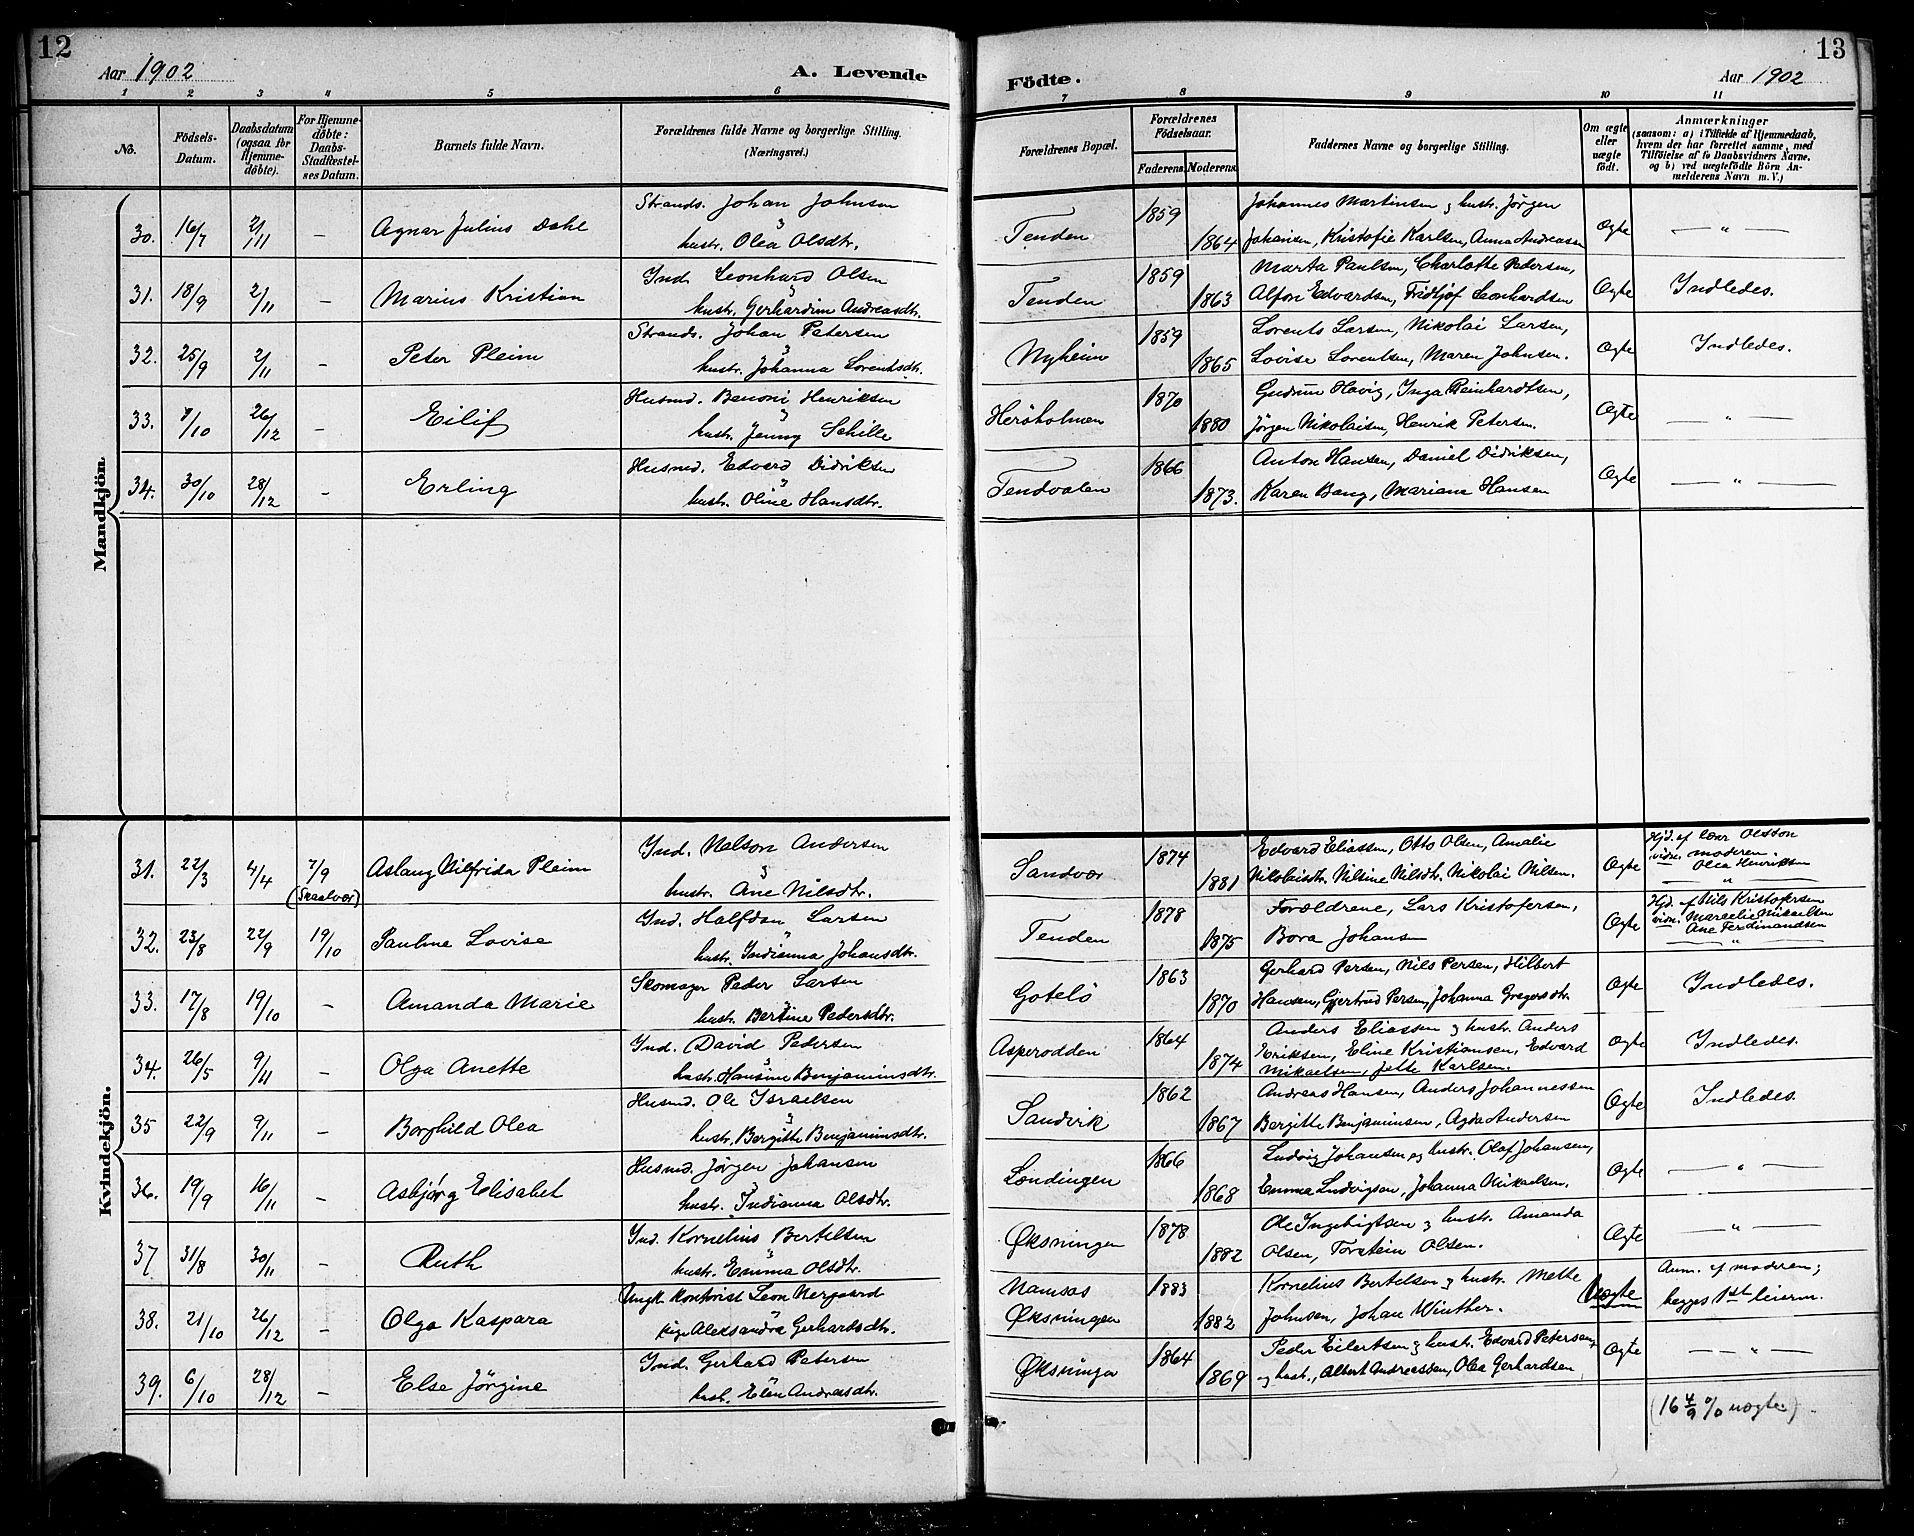 12
Aar 1902
A. Levende
1 2 3 4 5 6
No.
Födsels-Datum.
Daabsdatum (ogsaa for Hjemme-döbte).
For Hjemme-döbte: Daabs-Stadfæstel-ses Datum.
Barnets fulde Navn.
Forældrenes fulde Navne og borgerlige Stilling. (Næringsvei.)
Mandkjön
30. 16/7 2/11 – Agnar Julius Dahl Strands. Johan Johnsen
hustr. Olea Olsdtr.
31. 18/9 2/11 – Marius Kristian Ind. Leonhard Olsen
hustr. Gerhardine Andreasdtr.
32. 25/9 2/11 – Peter Pleim Strands. Johan Petersen
hustr. Johanna Lorentsdtr.
33. 7/10 26/12 – Eilif Husmd. Benoni Henriksen
hustr. Jenny Schille
34. 30/10 28/12 – Erling Husmd. Edvard Didriksen
hustr. Oline Hansdtr.
Kvindekjön.
31. 22/3 4/4 7/9 (Skaalvær) Aslaug Vilfrida Pleim Ind. Nelson Andersen
hustr. Ane Nilsdtr.
32. 23/8 22/9 19/10 Pauline Lovise Ind. Halfdan Larsen
hustr. Indianna Johansdtr.
33. 17/8 19/10 – Amanda Marie Skomager Peder Larsen
hustr. Bertine Pedersdtr.
34. 26/5 9/11 – Olga Anette Ind. David Pedersen
hustr. Hansine Benjaminsdtr.
35 22/9 9/11 – Borghild Olea Husmd. Ole Israelsen
hustr. Bergitte Benjaminsdtr.
36. 19/9 16/11 – Asbjørg Elisabet Husmd. Jørgen Johansen
hustr. Indianna Olsdtr.
37 31/8 30/11 – Ruth Ind. Kornelius Bertelsen
hustr. Emma Olsdtr.
38. 21/10 26/12 – Olga Kaspara Ungk. Kontorist Leon Nergaard
pige Aleksandra Gerhardsdtr.
39. 6/10 28/12 – Else Jørgine Ind. Gerhard Petersen
hust. Elen Andreasdtr.
13
Födte.
Aar 1902
7 8 9 10 11
Forældrenes Bopæl.
Forældrenes Födselsaar.
Faderens. Moderens.
Faddernes Navne og borgerlige Stilling.
Om ægte eller uægte födt.
Anmærkninger
(saasom: a) i Tilfælde af Hjemmedaab,
hvem der har forrettet samme, med
Tilföielse af to Daabsvidners Navne,
og b) ved uægtefödte Börn An-
melderens Navn m. V.)
Tenden 1859 1864 Johannes Martinsen og hustr. Jørgen
Johansen, Kristofie Karlsen, Anna Andreassen Ægte — " —
Tenden 1859 1863 Marta Paulsen, Charlotte Pedersen,
Alfon Edvardsen, Fridtjof Leonhardsen Ægte Indledes.
Nyheim 1859 1865 Lorents Larsen, Nikolai Larsen,
Lovise Lorentsen, Maren Johnsen. Ægte Indledes.
Herøholmen 1870 1880 Gudrun Havig, Inga Reinhardtsen,
Jørgen Nikolaisen, Henrik Petersen. Ægte — " —
Tendvalen 1866 1873. Anton Hansen, Daniel Didriksen,
Karen Bang, Mariane Hansen Ægte — " —
Sandvær 1874 1881 Edvard Eliassen, Otto Olsen, Amalie
Nikolaisdtr. Nilsine Nilsdtr. Nikolai Nilsen. Ægte Hjd. af Lær Olsson
vidne. moderen.
Olea Henriksen
Tenden 1878 1875 Forældrene, Lars Kristofersen,
Bora Johansen Ægte Hjd. af Nils Kristofersen
vidn. Marcelie Mikaelsen
Ane Ferdinandsen
Gotelö 1863 1870 Gerhard Persen, Nils Persen, Hilbert
Hansen, Gjertrud Persen, Johanna Gregersdtr. Ægte Indledes.
Asperodden 1864 1874 Anders Eliassen og hustr. Anders
Eriksen, Eline Kristiansen, Edvard
Mikaelsen, Jette Karlsen. Ægte Indledes.
Sandvik 1862 1867 Andreas Hansen, Anders Johannessen
Bergitte Benjaminsen, Agda Andersen Ægte Indledes.
Lendingen 1866 1868 Ludvig Johansen og hustr. Olaf Johansen,
Emma Ludvigsen, Johanna Mikaelsen. Ægte — " —
Øksningen 1878 1882 Ole Ingebrigtsen og hustr. Amanda
Olsen, Torstein Olsen. Ægte — " —
Namsos 1883
Øksningen 1882 Kornelius Bertelsen og hustr. Mette
Johnsen, Johan Winther. Uægte Anm. af moderen;
begges 1ste leierm.
Øksninga 1864 1869 Peder Eilertsen og hustr. Edvard Petersen
og hust., Albert Andreassen, Olea Gerhardsen Ægte — " —
(16 4/9 % uægte)